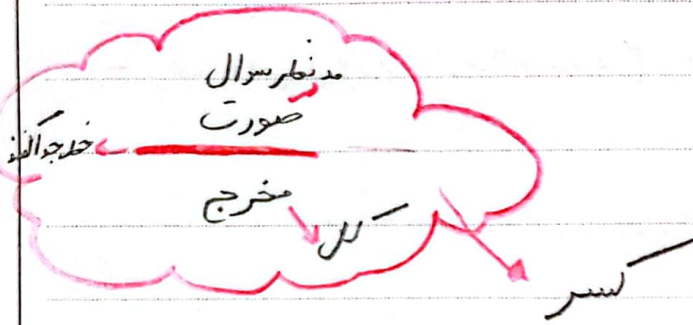 مد نظر سوال
صورت
خط جداکننده
مخرج
کل
کسر